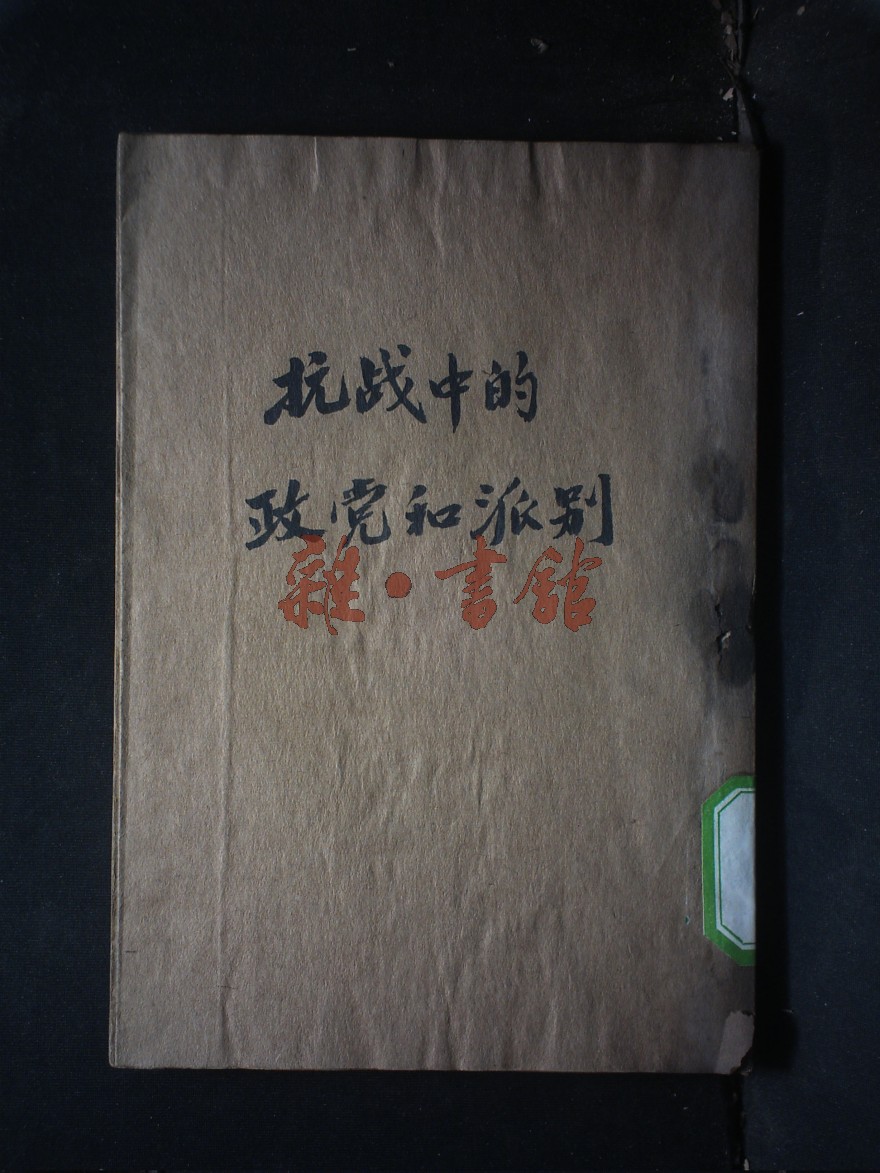 抗战中的
政党和派别
雜·書館